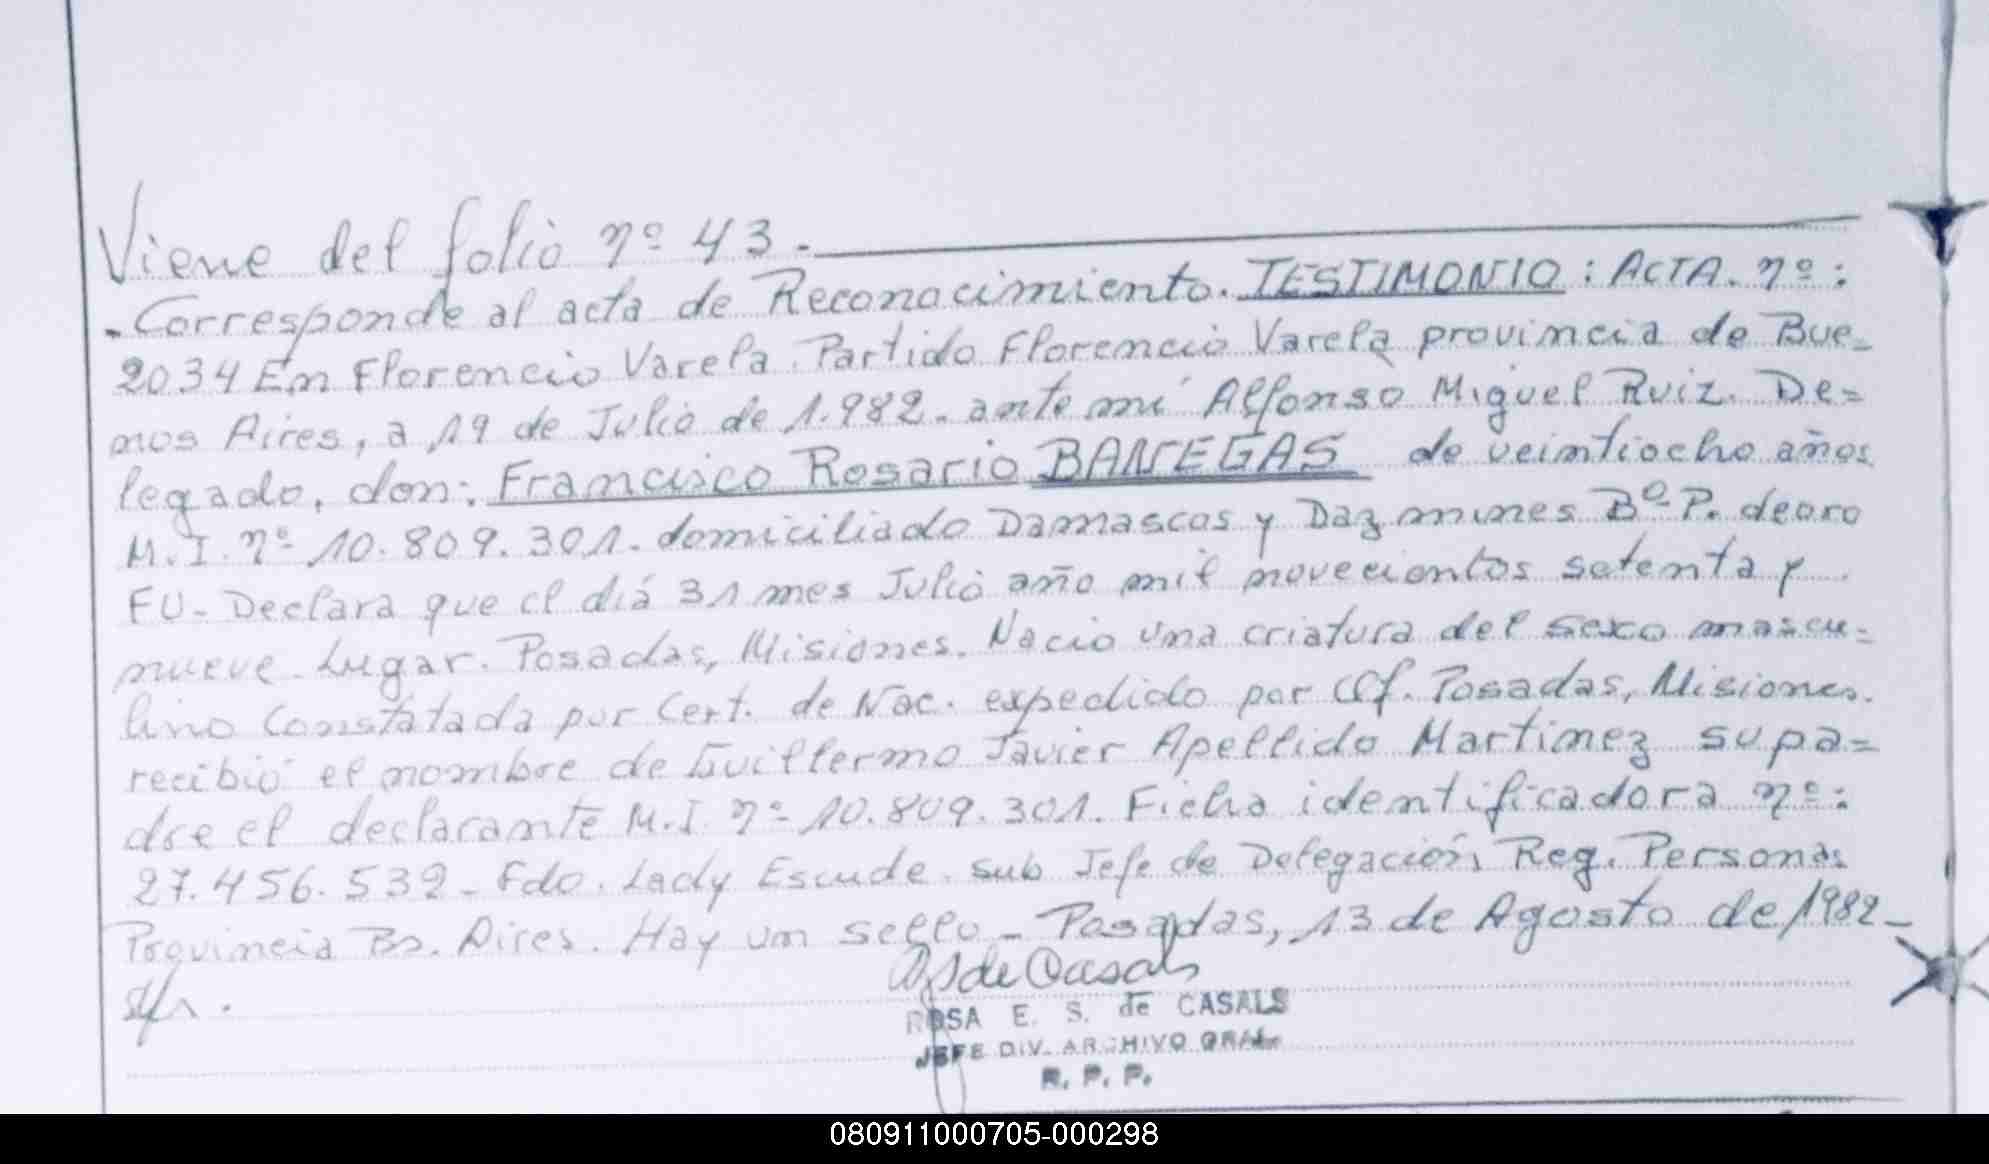 Viene del folio nº 43.
. Corresponde al acta de Reconocimiento. TESTIMONIO: ACTA. nº:
2034 En Florencio Varela. Partido Florencio Varela provincia de Bue-
nos Aires, a 19 de Julio de 1.982. ante mí Alfonso Miguel Ruiz. De=
legado, don: Francisco Rosario BANEGAS de veintiocho años
M.I. nº 10.809.301. domiciliado Damascos y Dazmines Bº P. deoro
FU- Declara que el diá 31 mes Julio año mil novecientos setenta y
nueve. Lugar. Posadas, Misiones. Nacio una criatura del sexo mascu=
lino Constatada por Cert. de Nac. expedido por Of. Posadas, Misiones.
recibió el nombre de Guillermo Javier Apellido Martinez su pa=
dre el declarante M.I. nº 10.809.301. Ficha identificadora nº:
27.456.532- Fdo. Lady Escude. sub Jefe de Delegación Reg. Personas
Provincia Bs. Aires. Hay un sello - Posadas, 13 de Agosto de 1982-
de Casals
ROSA E. S. de CASALS
JEFE DIV. ARCHIVO GRAL.
R. P. P.
080911000705-000298